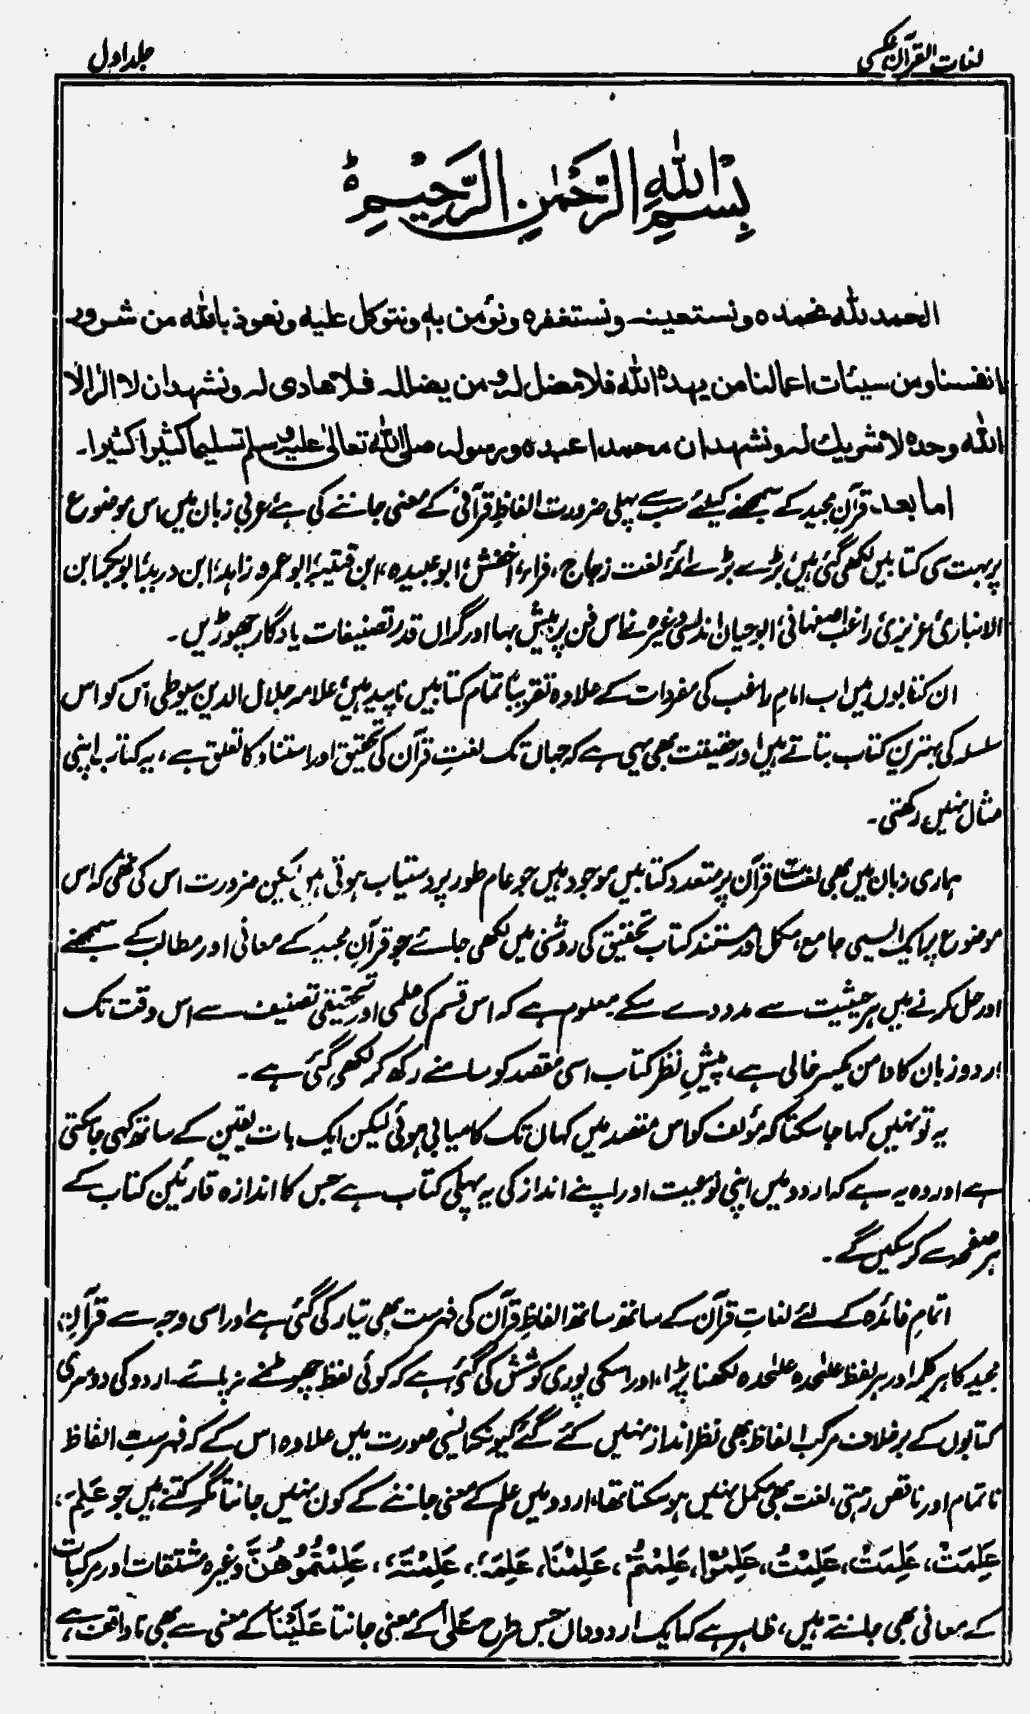 لغات القرآن عکسی
جلد اول
بِسْمِ اللهِ الرَّحْمٰنِ الرَّحِيْمِ ؕ
الحمد لله نحمده ونستعينه ونستغفره ونؤمن به ونتوكل عليه ونعوذ بالله من شرور
انفسنا ومن سيئات اعمالنا من يهده الله فلا مضل له ومن يضلله فلا هادى له ونشهد ان لا اله الا
الله وحده لا شريك له ونشهد ان محمدا عبده ورسوله صلى الله تعالىٰ عليه وسلم تسليما كثيرا كثيرا۔
اما بعد۔ قرآنِ مجید کے سمجھنے کیلئے سب سے پہلی ضرورت الفاظِ قرآنی کے معنی جاننے کی ہے، عربی زبان میں اس موضوع
پر بہت سی کتابیں لکھی گئی ہیں، بڑے بڑے ائمہ لغت زجاج، فراء، اخفش، ابوعبیدہ، ابن قتیبہ، ابوعمرو زاہد، ابن درید، ابوبکر ابن
الانباری، عزیزی، راغب اصفہانی، ابوحیان اندلسی وغیرہ نے اس فن پر بیش بہا اور گراں قدر تصنیفات یادگار چھوڑیں۔
ان کتابوں میں اب امام راغب کی مفردات کے علاوہ تقریباً تمام کتابیں ناپید ہیں، علامہ جلال الدین سیوطی اس کو اس
سلسلہ کی بہترین کتاب بتاتے ہیں اور حقیقت بھی یہی ہے کہ جہاں تک لغتِ قرآن کی تحقیق اور استناد کا تعلق ہے، یہ کتاب اپنی
مثال نہیں رکھتی۔
ہماری زبان میں بھی لغت قرآن پر متعدد کتابیں موجود ہیں جو عام طور پر دستیاب ہوتی ہیں لیکن ضرورت اس کی تھی کہ اس
موضوع پر ایک ایسی جامع، مکمل اور مستند کتاب تحقیق کی روشنی میں لکھی جائے جو قرآنِ مجید کے معانی اور مطالب کے سمجھنے
اور حل کرنے میں ہر حیثیت سے مدد دے سکے معلوم ہے کہ اس قسم کی علمی اور تحقیقی تصنیف سے اس وقت تک
اردو زبان کا دامن یکسر خالی ہے، پیشِ نظر کتاب اسی مقصد کو سامنے رکھ کر لکھی گئی ہے۔
یہ تو نہیں کہا جاسکتا کہ مؤلف کو اس مقصد میں کہاں تک کامیابی ہوئی لیکن ایک بات یقین کے ساتھ کہی جاسکتی
ہے اور وہ یہ ہے کہ اردو میں اپنی نوعیت اور اپنے انداز کی یہ پہلی کتاب ہے جس کا اندازہ قارئین کتاب کے
ہر صفحہ سے کرسکیں گے۔
اتمامِ فائدہ کے لئے لغاتِ قرآن کے ساتھ ساتھ الفاظِ قرآن کی فہرست بھی تیار کی گئی ہے اور اسی وجہ سے قرآنِ
مجید کا ہر کلمہ اور ہر لفظ علیٰحدہ علیٰحدہ لکھنا پڑا، اور اسکی پوری کوشش کی گئی ہے کہ کوئی لفظ چھوٹنے نہ پائے۔ اردو کی دوسری
کتابوں کے برخلاف مرکب الفاظ بھی نظر انداز نہیں کئے گئے کیونکہ ایسی صورت میں علاوہ اس کے کہ فہرستِ الفاظ
ناتمام اور ناقص رہتی، لغت بھی مکمل نہیں ہوسکتا تھا، اردو میں علم کے معنی جاننے کے کون نہیں جانتا مگر کتنے ہیں جو عَلِمَ،
عَلِمَتْ، عَلِمَتْ، عَلِمْتُ، عَلِمُوْا، عَلِمْتُمْ، عَلِمْنَا، عَلِمَہٗ، عَلِمْتَہٗ، عَلِمْتُمُوْهُنَّ وغیرہ مشتقات اور مرکبات
کے معانی بھی جانتے ہیں، ظاہر ہے کہ ایک اردو داں جس طرح عَلٰی کے معنی جانتا عَلَیْنَا کے معنی سے بھی ناواقف ہے